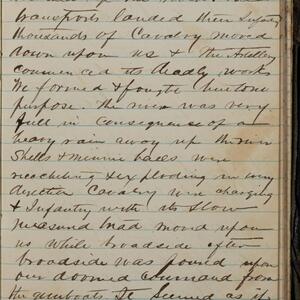 transports landed their Infantry
thousands of Cavalry moved
down upon us & the Artillery
commenced its deadly work
We formed & fought but to no
purpose. The river was very
full in consequence of a
heavy rain away up the river
Shells & minnie balls were
ricocheting & exploding in every
direction Cavalry were charging
& Infantry with its slow
measured tread moved upon
us while broadside after
broadside was poured upon
our doomed command from
the gunboats. It seemed as if